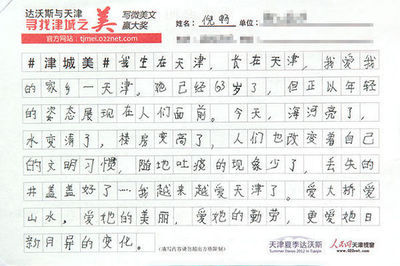 达沃斯与天津
寻找津城之美
写微美文
赢大奖
官方网站:tjmei.022net.com
姓名: 倪
#津城美#我生在天津,长在天津,我爱我
的家乡—天津,她已经63岁了,但正以年轻
的姿态展现在人们面前。今天,海河亮了,
水变清了,楼房变高了,人们也改变着自己
的文明习惯,随地吐痰的现象少了,丢失的
井盖盖好了……我越来越爱天津了。爱大桥爱
山水,爱她的美丽,爱她的勤劳,更爱她日
新月异的变化。
(填写内容请勿超出方格限制)
天津夏季达沃斯
Summer Davos 2012 in Tianjin
人民网天津视窗
www.022net.com